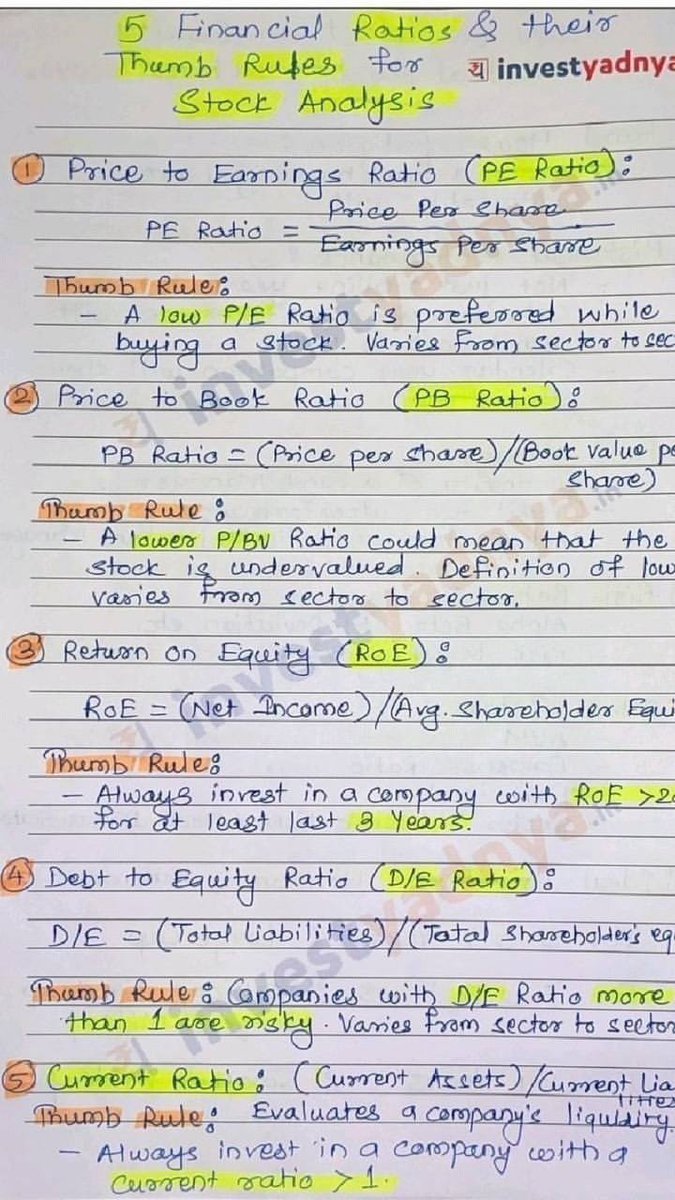 5 Financial Ratios & their
Thumb Rules for
य investyadnya
Stock Analysis
1 Price to Earnings Ratio (PE Ratio):
PE Ratio = Price Per Share
Earnings Per Share
Thumb Rule:
- A low P/E Ratio is preferred while
buying a stock. Varies from sector to sec
2 Price to Book Ratio (PB Ratio):
PB Ratio = (Price per share)/(Book value pe
share)
Thumb Rule:
- A lower P/BV Ratio could mean that the
stock is undervalued. Definition of low
varies from sector to sector.
3 Return on Equity (RoE):
RoE = (Net Income)/(Avg. Shareholder Equi
Thumb Rule:
- Always invest in a company with RoE >20
for at least last 3 Years.
4 Debt to Equity Ratio (D/E Ratio):
D/E = (Total Liabilities)/(Total Shareholder's equ
Thumb Rule: Companies with D/E Ratio more
than 1 are risky. Varies from sector to sector
5 Current Ratio: (Current Assets)/Current Lia
lities
Thumb Rule: Evaluates a company's liquidity.
- Always invest in a company with a
current ratio > 1.